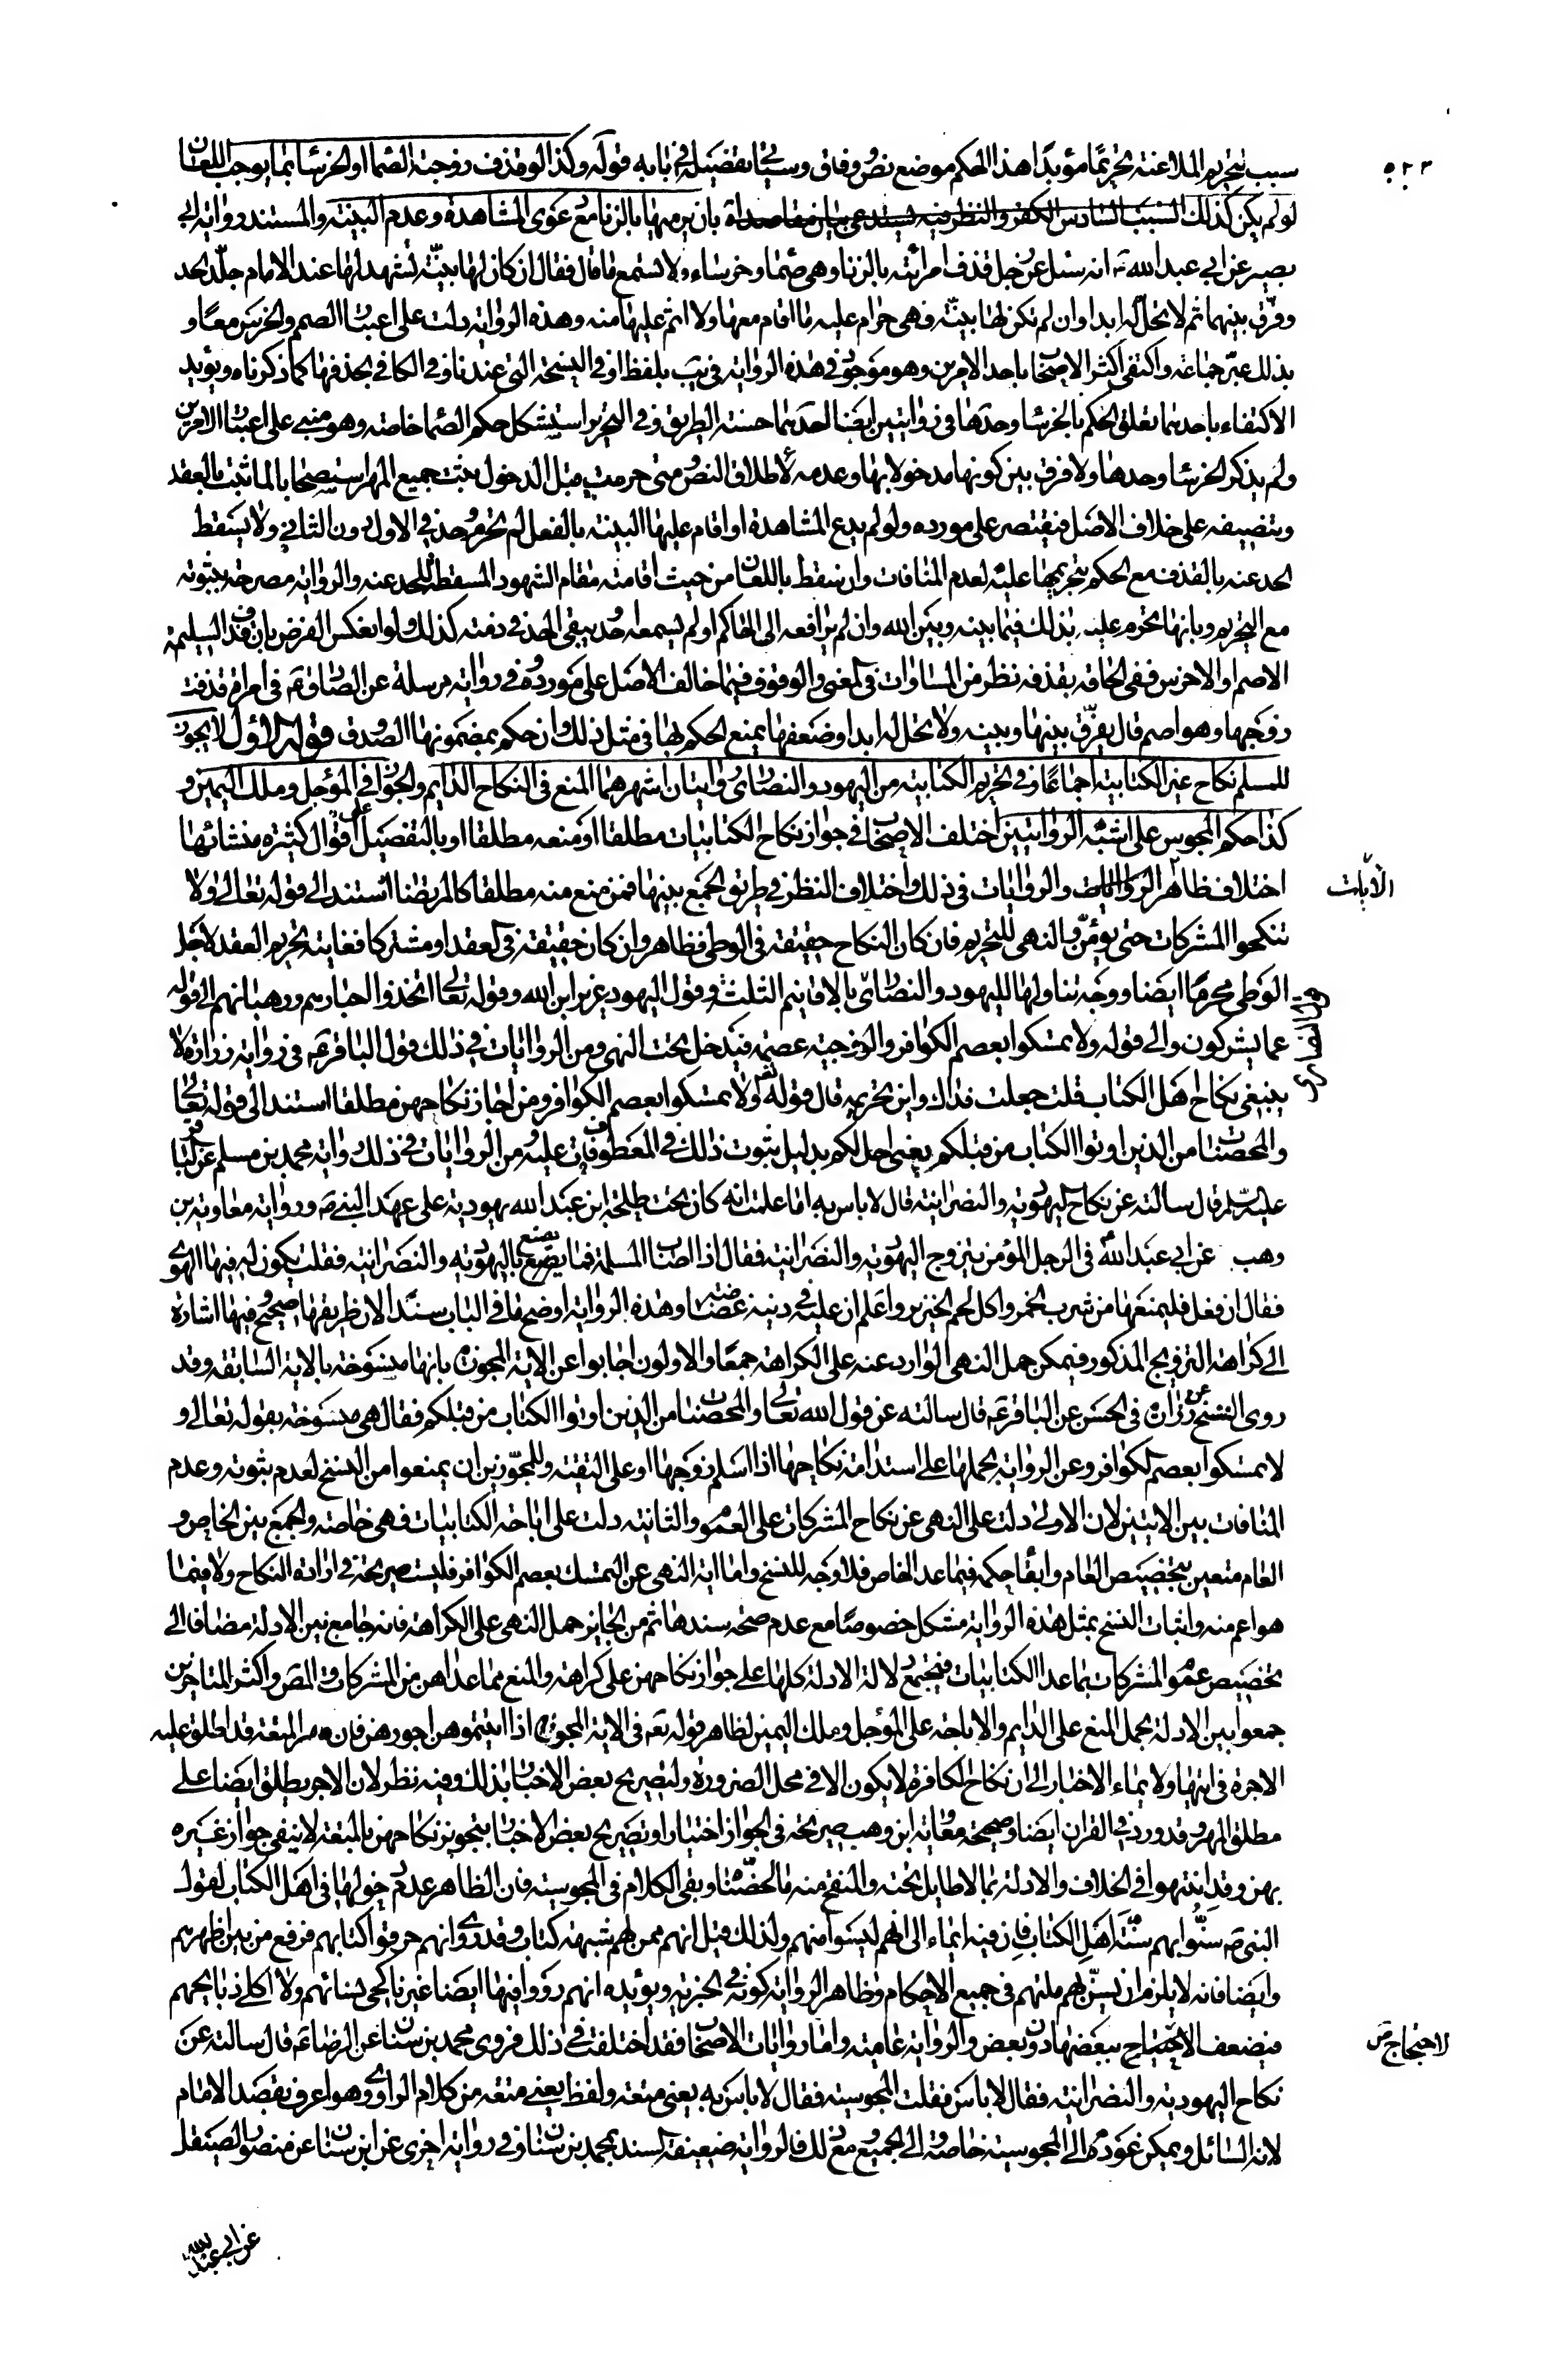 ٥٢٣
سبب تحريم الملاعنة تحريمًا مؤبدًا هذا الحكم موضع نص ووفاق وسياتى تفصيله فى بابه قوله وكذا لو قذف زوجته الصماء او الخرساء بما يوجب اللعان
لو لم يكن كذلك السبب السادس الكفر والنظر فيه يستدعى بيان مقاصد اه بان يرميها بالزنا مع دعوى المشاهدة وعدم البينة والمستند رواية ابى
بصير عن ابى عبد الله ع انه سئل عن رجل قذف امرأته بالزنا وهى صماء وخرساء ولا تسمع ما قال فقال ان كان لها بينة تشهد لها عند الامام جلد الحد
وفرق بينهما ثم لا تحل له ابدا وان لم تكن لها بينة فهى حرام عليه ما اقام معها ولا اثم عليها منه وهذه الرواية دلت على اعتبار الصمم والخرس معًا و
بذلك عبر جماعة واكتفى اكثر الاصحاب باحد الامرين وهو موجود فى هذه الرواية فى يب بلفظ او فى النسخة التى عندنا وفى الكافى بحذفها كما ذكرناه ويؤيد
الاكتفاء باحدهما تعلق الحكم بالخرساء وحدها فى روايتين ايضا احدهما حسنة الطريق وفى التحرير استشكل حكم الصماء خاصة وهو مبنى على اعتبار الامرين
ولم يذكر الخرساء وحدها ولا فرق بين كونها مدخولا بها وعدمه لاطلاق النص ومتى حرمت قبل الدخول يثبت جميع المهر استصحابا لما ثبت بالعقد
وتنصيفه على خلاف الاصل فيقتصر على مورده ولو لم يدع المشاهدة او اقام عليها البينة بالفعل لم تحرم وحد فى الاول دون الثانى ولا يسقط
الحد عنه بالقذف مع الحكم بتحريمها عليه لعدم المنافات وان سقط باللعان من حيث اقامته مقام الشهود المسقطة للحد عنه والرواية مصرحة بثبوته
مع التحريم وبانها تحرم عليه بذلك فيما بينه وبين الله وان لم ترافعه الى الحاكم او لم يسمعه احد يبقى الحد فى ذمته كذلك ولو انعكس الفرض بان قذفت السليمة
الاصم او الاخرس ففى الحاقه بقذفه نظر من المساوات فى المعنى والوقوف فيما خالف الاصل على مورده وفى رواية مرسلة عن الصادق ع فى امراة قذفت
زوجها وهو اصم قال يفرق بينها وبينه ولا تحل له ابدا وضعفها يمنع الحكم بها فى مثل ذلك وان حكم بمضمونها الصدوق قوله الاول لا يجوز
للمسلم نكاح غير الكتابية اجماعًا وفى تحريم الكتابية من اليهود والنصارى روايتان اشهرهما المنع فى النكاح الدايم والجواز فى المؤجل وملك اليمين و
كذا حكم المجوس على اشبه الروايتين اختلف الاصحاب فى جواز نكاح الكتابيات مطلقا او منعه مطلقا او بالتفصيل على اقوال كثيرة منشائها
اختلاف ظاهر الروايات والروايات فى ذلك واختلاف النظر فى طريق الجمع بينها فمن منع منه مطلقا كالمرتضى استند الى قوله تعالى ولا
الآيات
تنكحوا المشركات حتى يؤمن والنهى للتحريم فان كان النكاح حقيقة فى الوطى فظاهر وان كان حقيقة فى العقد او مشتركا فغايته تحريم العقد لاجل
الوطى محرمًا ايضا ووجه تناولها لليهود والنصارى بالاقانيم الثلثة وقول اليهود عزير ابن الله وقوله تعالى اتخذوا احبارهم ورهبانهم الى قوله
عما يشركون والى قوله ولا تمسكوا بعصم الكوافر والزوجية عصمة فيدخل تحت النهى ومن الروايات فى ذلك قول الباقر ع فى رواية زرارة لا
ينبغى نكاح اهل الكتاب قلت جعلت فداك واين تحريمه قال قوله تع ولا تمسكوا بعصم الكوافر ومن اجاز نكاحهن مطلقا استند الى قوله تعالى
والمحصنات من الذين اوتوا الكتاب من قبلكم يعنى احل لكم بدليل ثبوت ذلك فى المعطوفات عليه ومن الروايات فى ذلك رواية محمد بن مسلم عن الباقر
عليه السلم قال سالته عن نكاح اليهودية والنصرانية قال لا باس به اما علمت انه كان تحت طلحة ابن عبد الله يهودية على عهد النبى ص ورواية معاوية بن
وهب عن ابى عبد الله ع فى الرجل المؤمن يتزوج اليهودية والنصرانية فقال اذا اصاب المسلمة فما يصنع باليهودية والنصرانية فقلت يكون له فيها الهوى
فقال ان فعل فليمنعها من شرب الخمر واكل لحم الخنزير واعلم ان عليه فى دينه غضاضة وهذه الرواية اوضح ما فى الباب سندًا لان طريقها صحيح وفيها اشارة
الى كراهة التزويج المذكور فيمكن حمل النهى الوارد عنه على الكراهة جمعًا والاولون اجابوا عن الاية المجوزة بانها منسوخة بالاية السابقة وقد
روى النسخ عن زرارة فى الحسن عن الباقر ع قال سالته عن قول الله تعالى والمحصنات من الذين اوتوا الكتاب من قبلكم فقال هى منسوخة بقوله تعالى و
لا تمسكوا بعصم الكوافر وعن الرواية بحملها على استدامة نكاحها اذا اسلم زوجها او على التقية وللمجوزين ان يمنعوا من النسخ لعدم ثبوته وعدم
المنافات بين الايتين لان الاولى دلت على النهى عن نكاح المشركات على العموم والثانية دلت على اباحة الكتابيات فهى خاصة والجمع بين الخاص و
العام متعين بتخصيص العام وابقاء حكمه فيما عدا الخاص فلا وجه للنسخ واما اية النهى عن التمسك بعصم الكوافر فليست صريحة فى ارادة النكاح ولا فيما
هو اعم منه واثبات النسخ بمثل هذه الرواية مشكل خصوصًا مع عدم صحة سندها ثم من الجايز حمل النهى على الكراهة فانه جامع بين الادلة مضافا الى
تخصيص عموم المشركات بما عدا الكتابيات فيجتمع دلالة الادلة كلها على جواز نكاحهن على كراهة والمنع مما عداهن من المشركات والمص واكثر المتاخرين
جمعوا بين الادلة بحمل المنع على الدايم والاباحة على المؤجل وملك اليمين لظاهر قوله تع فى الاية المجوزة اذا اتيتموهن اجورهن فان مهر المتعة قد اطلق عليه
الاجرة فى ايتها ولايماء الاخبار الى ان نكاح الكافرة لا يكون الا فى محل الضرورة ولتصريح بعض الاخبار بذلك وفيه نظر لان الاجر يطلق ايضا على
مطلق المهر وقد ورد فى القران ايضا وصحيحة معاوية ابن وهب صريحة فى الجواز اختيارا وتصريح بعض الاخبار بتجويز نكاحهن بالمتعة لا ينفى جواز غيره
بهن وقد انتهوا فى الخلاف والادلة بما لا طايل تحته والمنقح منه ما لخصناه وبقى الكلام فى المجوسية فان الظاهر عدم دخولها فى اهل الكتاب لقول
النبى ص سنوا بهم سنة اهل الكتاب فان فيه ايماء الى انهم ليسوا منهم ولذلك قيل انهم ممن لهم شبهة كتاب وقد روى انهم حرقوا كتابهم فرفع من بين اظهرهم
وايضا فانه لا يلزم ان يسن بهم سنتهم فى جميع الاحكام وظاهر الرواية كونه فى الجزية ويؤيده انهم رووا فيها ايضا غير ناكحى نسائهم ولا اكلى ذبايحهم
فيضعف الاحتياج ببعضها دون بعض والرواية عامية واما روايات الاصحاب فقد اختلفت فى ذلك فروى محمد بن سنان عن الرضا ع قال سالته عن
لاحتجاج ص
نكاح اليهودية والنصرانية فقال لا باس فقلت المجوسية فقال لا باس به يعنى متعة ولفظ يعنى متعة من كلام الراوى وهو اعرف بقصد الامام
لانه السائل ويمكن عوده الى المجوسية خاصة والى الجميع مع ذلك فالرواية ضعيفة السند بمحمد بن سنان وفى رواية اخرى عن ابن سنان عن منصور الصيقل
عن ابى عبد الله